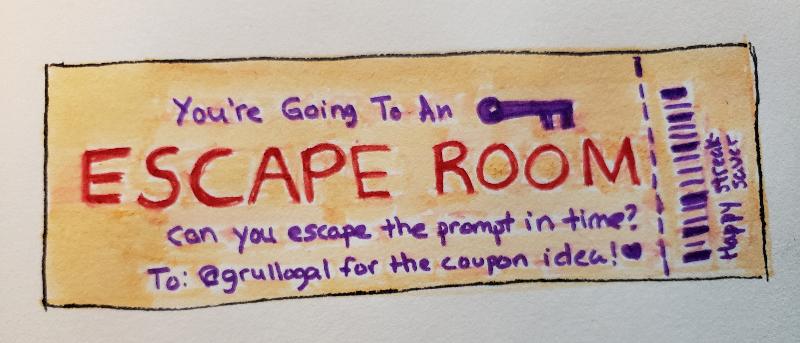 You're Going To An
ESCAPE ROOM
can you escape the prompt in time?
To: @grullagal for the coupon idea!
Happy streak
saver